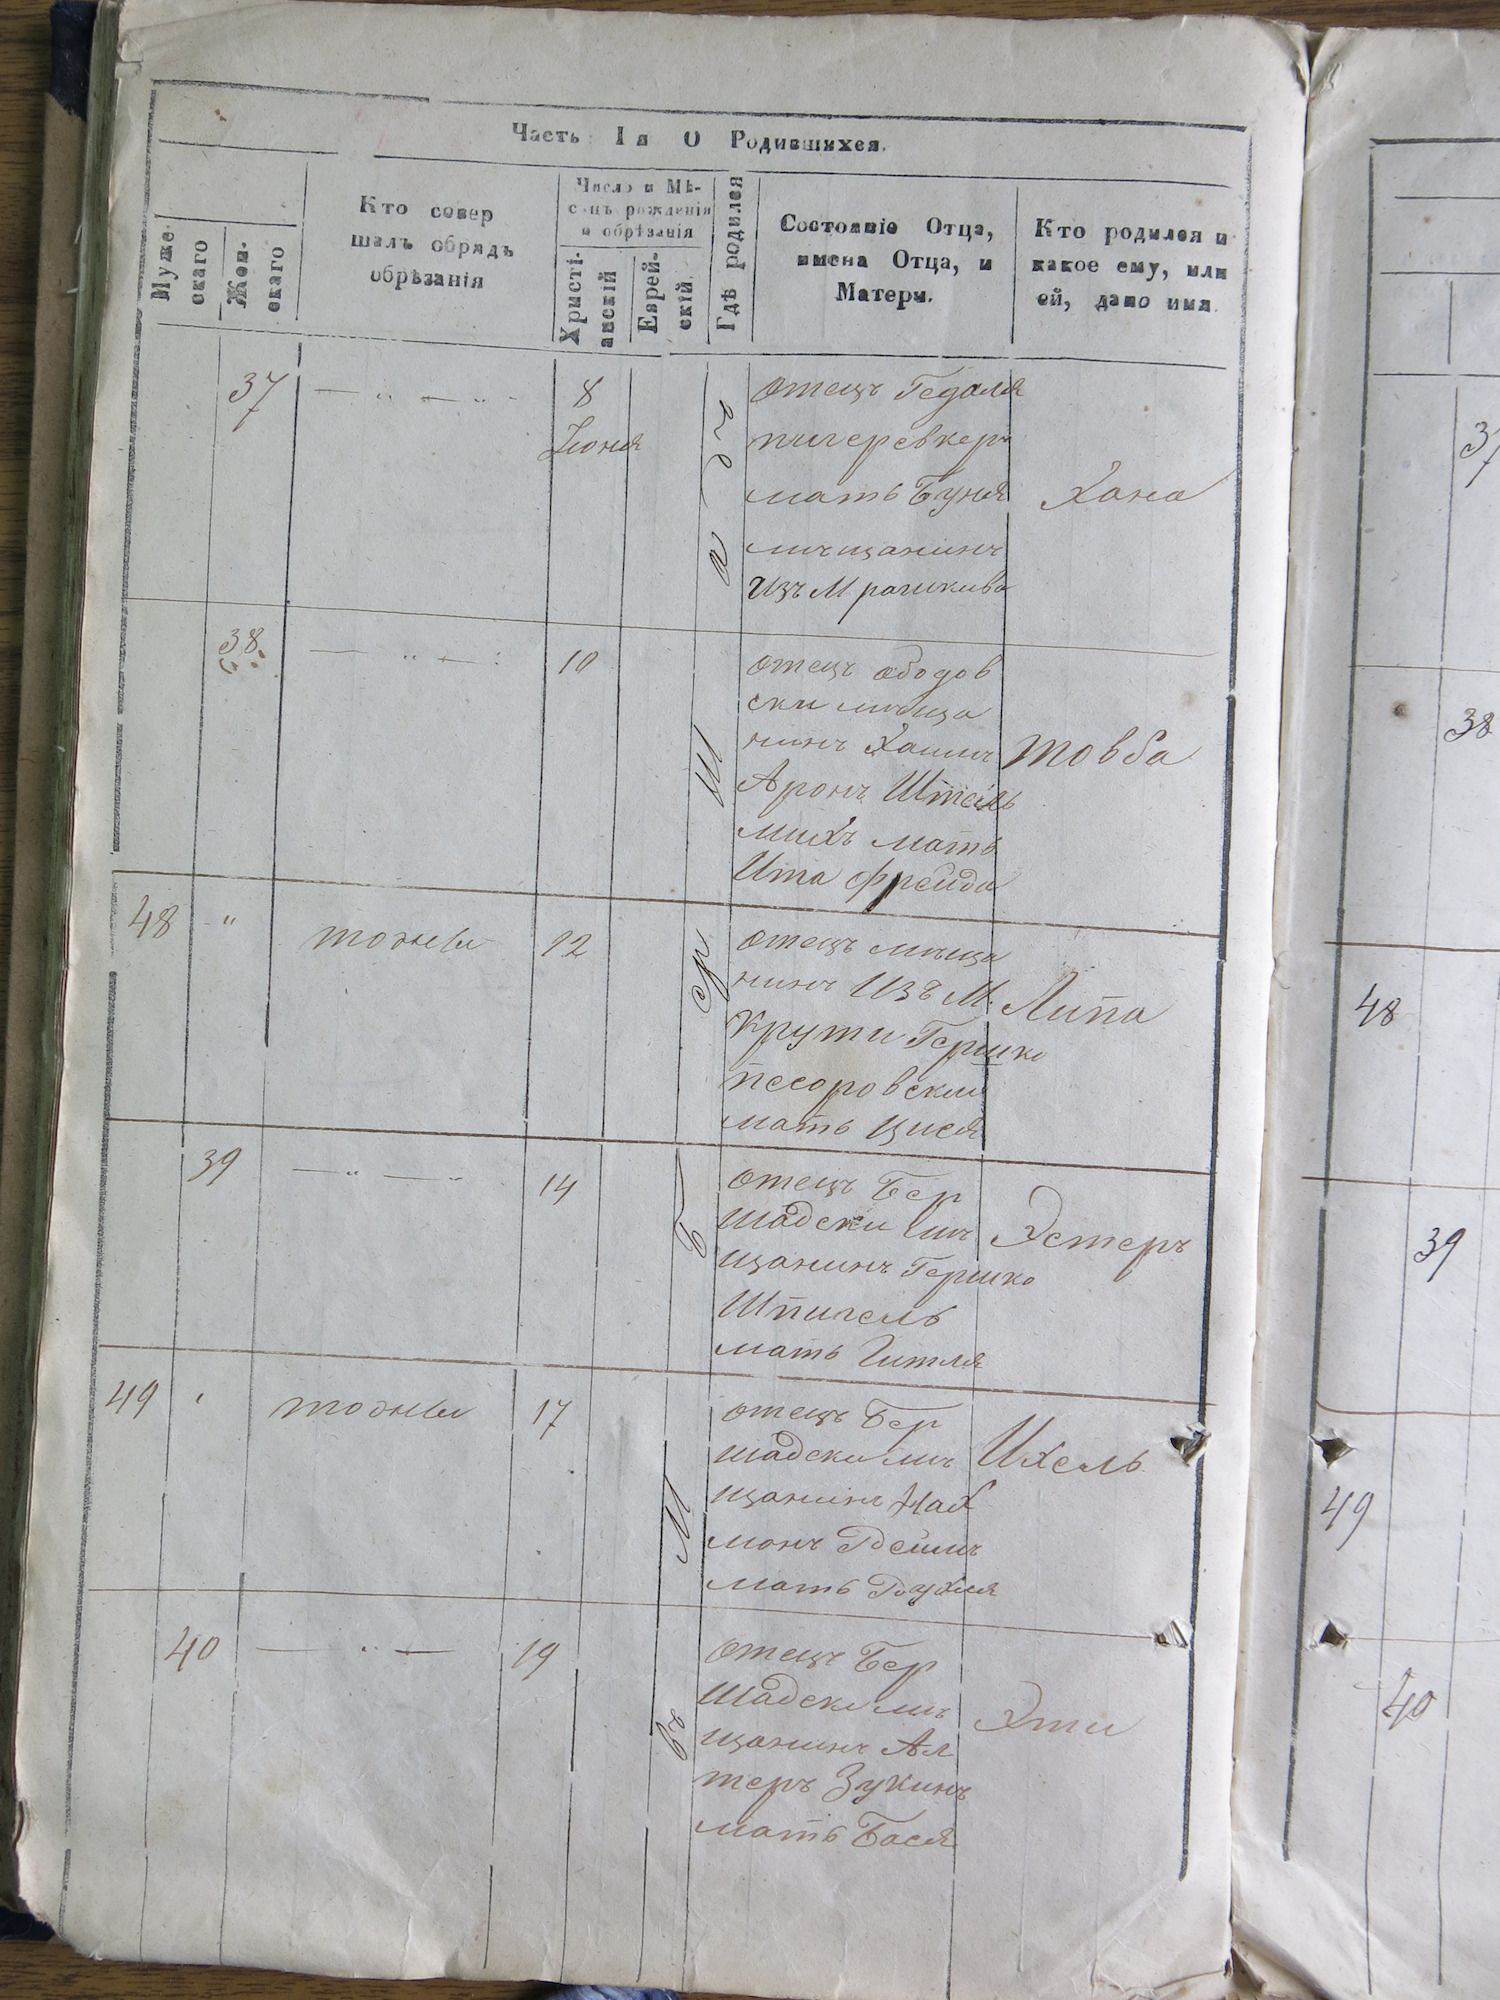 Часть Iя О Родившихся.
Мужескаго
Женскаго
Кто совер
шалъ обрядъ
обрѣзанія
Число и Мѣ-
сяцъ рожденія
и обрѣзанія
Христі-
анскій
Еврей-
скій.
Гдѣ родился
Состояніе Отца,
имена Отца, и
Матери.
Кто родился и
какое ему, или
ей, дано имя.
37 — „ — „ - 8
Іюня
отецъ Гедаля
мать Буня
мѣщанинъ
изъ М
Хана
38. — „ — : 10
отецъ ободов
ски мѣща
нинъ Хаимъ
Аронъ Штель
михъ мать
Ита Фрейда
товба
48 „ тожъ 12
отецъ мѣща
нинъ изъ М.
Крути Гершко
песоровский
мать Цися
Липа
39 — „ — „ 14
отецъ Бер
шадски мѣ
щанинъ Гершко
Шпигель
мать Гитля
Эстеръ
49 тожъ 17
отецъ Бер
шадски мѣ
щанинъ Нах
монъ
мать Рухля
Ихель
40 — „ — 19
отецъ Бер
шадски мѣ
щанинъ Ал
теръ Зукинъ
мать Бася
Эти
В ъ М Б Ер Ш а д ъ
37
38
48
39
49
40